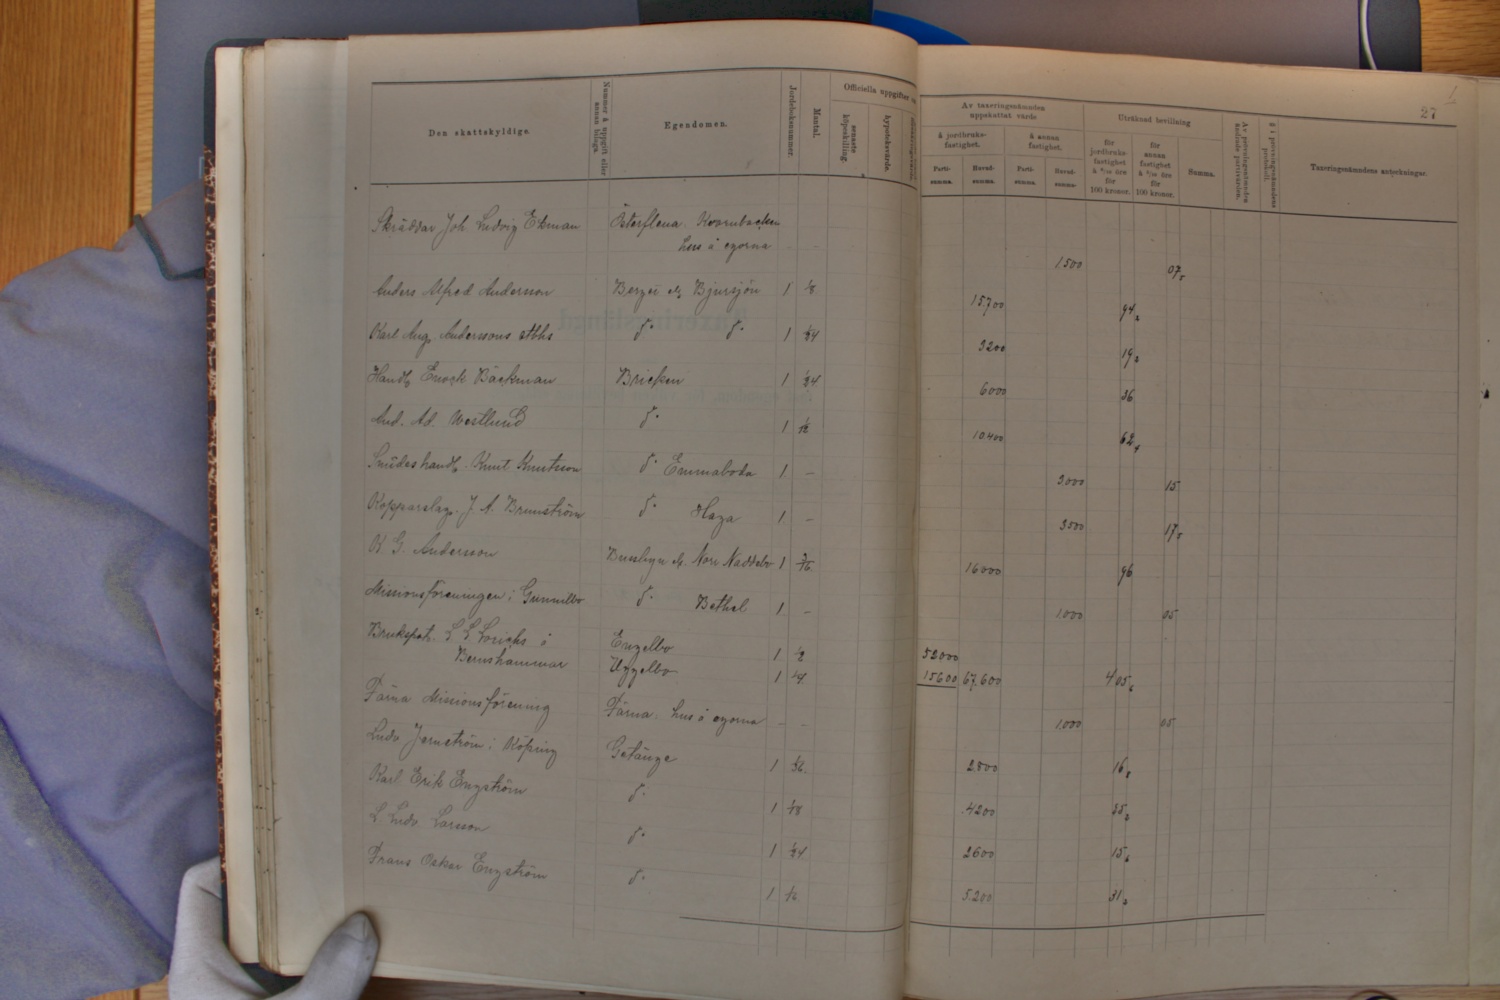 27
Den skattskyldige.
Nummer å uppgift eller annan bilaga.
Egendomen.
Jordeboksnummer.
Mantal.
Officiella uppgifter
senaste köpeskilling.
hypoteksvärde.
Av taxeringsnämnden uppskattat värde
å jordbruksfastighet.
å annan fastighet.
Partisumma.
Huvudsumma.
Partisumma.
Huvudsumma.
Uträknad bevillning
för jordbruksfastighet å 6/10 öre för 100 kronor.
för annan fastighet å 5/10 öre för 100 kronor.
Summa.
Taxeringsnämndens anteckningar.
Skräddar Joh Ludvig Ekman Österflena Kvarnbacken
hus å egorna 1.500 07,5
Anders Alfred Andersson Bergei Bjursjön 1 1/8 15.700 94,2
Karl Aug. Anderssons stbhs d:o d:o 1 1/24 3200 19,2
Handl. Enock Bäckman Bricken 1 1/24 6000 36
And. Ad. Westlund d:o 1 1/12 10.400 62,4
Smideshandl. Knut Knutsson d:o Emmaboda 1 – 3.000 15
Kopparslag. J. A. Brunström d:o Haga 1 – 3500 17,5
K. G. Andersson Norr Naddebo 1 3/16 16000 96
Missionsföreningen i Gunnilbo d:o Bethel 1 – 1.000 05
Brukspatr. Lorichs å Engelbo 1 1/2 52000
Bernshammar Uggelbo 1 1/4 15600 67.600 4 05,6
Färna Missionsförening Färna hus å egorna – – 1.000 05
Ludv Jernström i Köping Getänge 1 1/36 2.800 16,8
Karl Erik Engström d:o 1 1/18 4200 25,2
L. Ludv Larsson d:o 1 1/24 2600 15,6
Frans Oskar Engström d:o 1 5.200 31,2